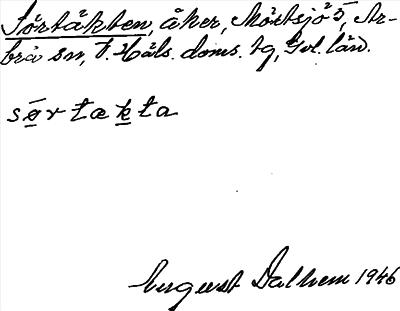 Sörtäkten, åker, Mörtsjö 5, Ar-
brå sn, V. Häls. doms. tg, Gvl. län.
sørtækta
August Dalhem 1946